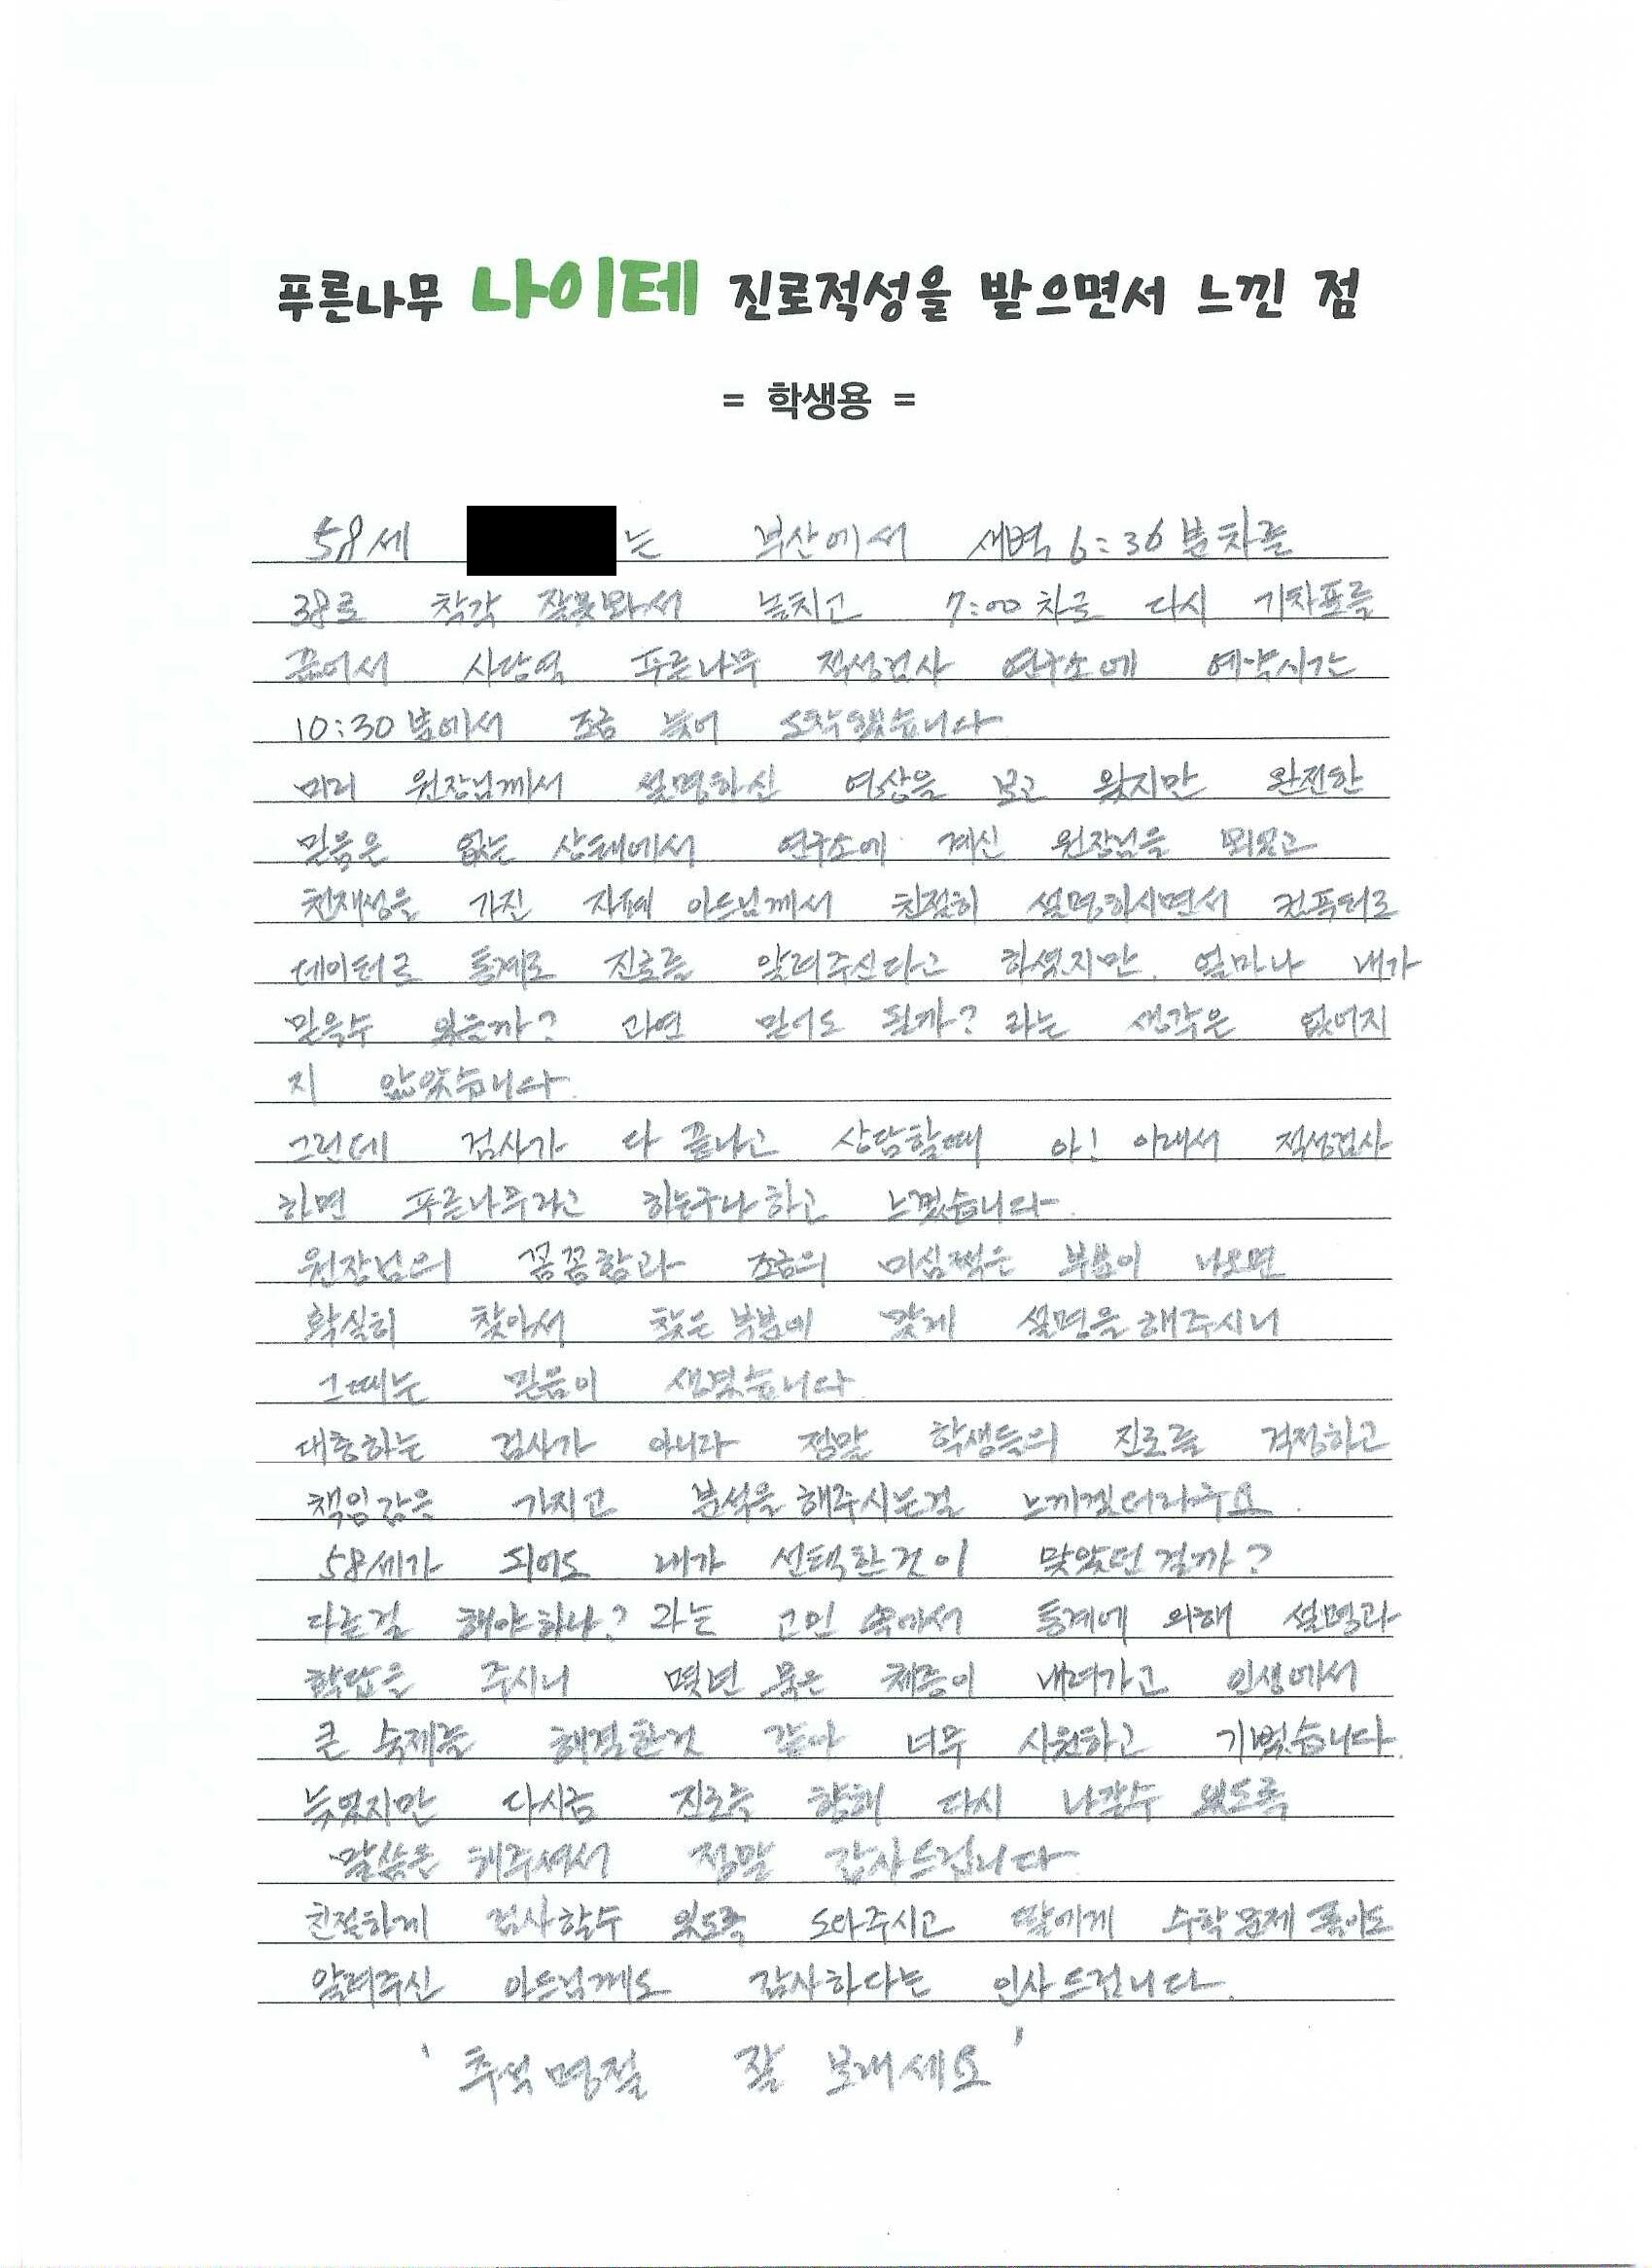 푸른나무 나이테 진로적성을 받으면서 느낀 점
= 학생용 =
58세 는 부산에서 새벽 6:36분차를
38로 착각 잘못봐서 놓치고 7:00차로 다시 기차표를
끊어서 사당역 푸른나무 적성검사 연구소에 예약시간
10:30분에서 조금 늦어 도착했습니다
미리 원장님께서 설명하신 영상을 보고 왔지만 완전한
믿음은 없는 상태에서 연구소에 계신 원장님을 뵈었고
천재성을 가진 자폐 아드님께서 친절히 설명하시면서 컴퓨터로
데이터로 통계로 진로를 알려주신다고 하셨지만. 얼마나 내가
믿을수 있을까? 과연 믿어도 될까? 라는 생각은 없어지
지 않았습니다.
그런데 검사가 다 끝나고 상담할때 아! 이래서 적성검사
하면 푸른나무라고 하는구나 하고 느꼈습니다.
원장님의 꼼꼼함과 조금의 미심쩍은 부분이 나오면
확실히 찾아서 찾은 부분에 맞게 설명을 해주시니
그때는 믿음이 생겼습니다.
대충하는 검사가 아니라 정말 학생들의 진로를 걱정하고
책임감을 가지고 분석을 해주시는걸 느끼겠더라구요.
58세가 되어도 내가 선택한것이 맞았던 걸까?
다른걸 해야하나? 라는 고민 속에서 통계에 의해 설명과
확답을 주시니 몇년 묵은 체증이 내려가고 인생에서
큰 숙제를 해결한것 같아 너무 시원하고 기뻤습니다.
늦었지만 다시금 진로를 향해 다시 나갈수 있도록
말씀을 해주셔서 정말 감사드립니다
친절하게 검사할수 있도록 도와주시고 딸에게 수학문제 풀이도
알려주신 아드님께도 감사하다는 인사드립니다.
' 추석명절 잘 보내세요 '